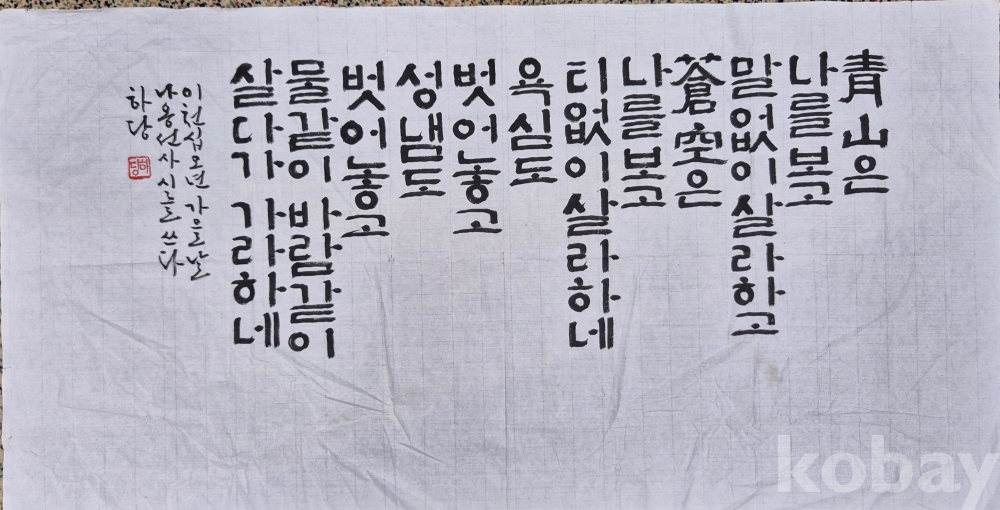 靑山은
나를 보고
말없이 살라하고
蒼空은
나를 보고
티없이 살라하네
욕심도
벗어놓고
성냄도
벗어놓고
물같이 바람같이
살다가 가라하네
이천십오년 가을날
나옹선사 시를 쓰다
하당
하당
kobay